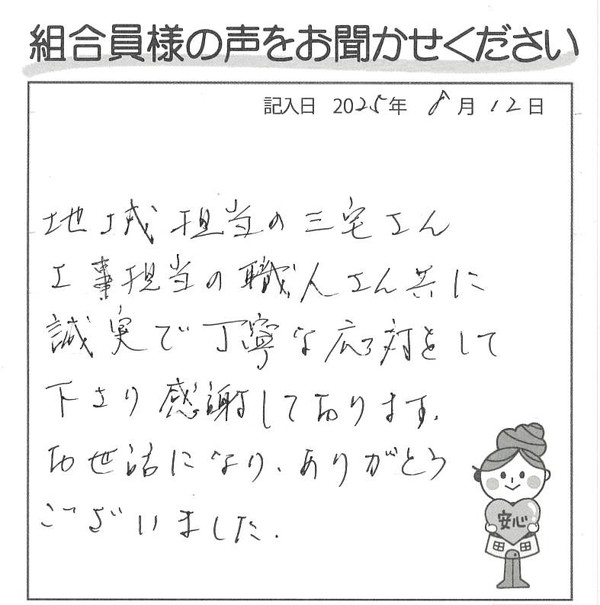 組合員様の声をお聞かせください
記入日 2025年 8月 12日
地域担当の三宅さん
工事担当の職人さん共に
誠実で丁寧な応対をして
下さり感謝しております。
お世話になり、ありがとう
ございました。
安心